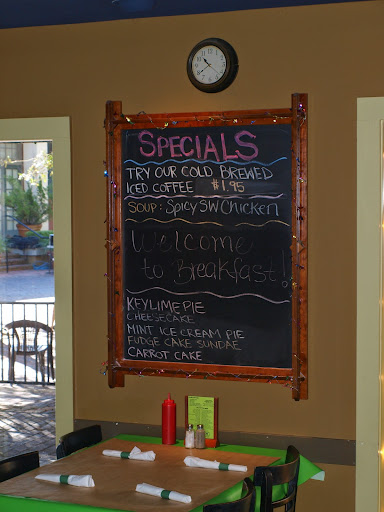 SPECIALS
TRY OUR COLD BREWED
ICED COFFEE $1.95
SOUP: SPICY SW CHICKEN
Welcome
to Breakfast!
KEYLIME PIE
CHEESECAKE
MINT ICE CREAM PIE
FUDGE CAKE SUNDAE
CARROT CAKE